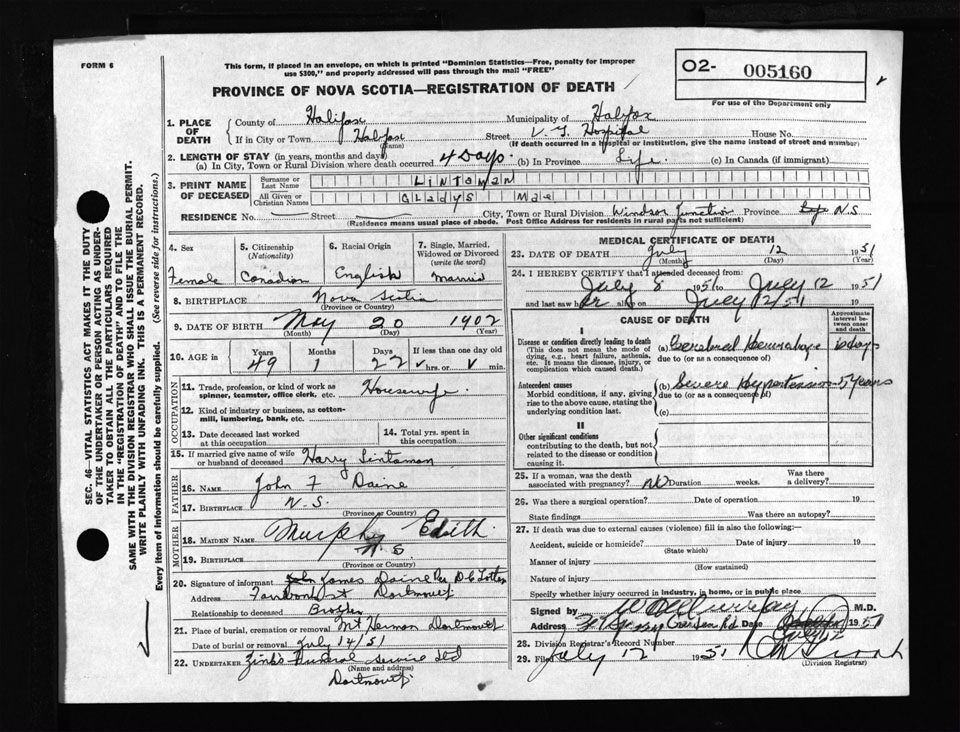 FORM 6
This form, if placed in an envelope, on which is printed "Dominion Statistics—Free, penalty for improper
use $300," and properly addressed will pass through the mail "FREE"
O2- 005160
For use of the Department only
PROVINCE OF NOVA SCOTIA—REGISTRATION OF DEATH
1. PLACE OF DEATH
County of Halifax Municipality of Halifax
If in City or Town Halifax (Name) Street V. G. Hospital House No.
(If death occurred in a hospital or institution, give the name instead of street and number)
2. LENGTH OF STAY (in years, months and days)
(a) In City, Town or Rural Division where death occurred 4 Days. (b) In Province Life. (c) In Canada (if immigrant)
3. PRINT NAME OF DECEASED
Surname or Last Name Lintaman
All Given or Christian Names Gladys Mae
RESIDENCE No. Street City, Town or Rural Division Windsor Junction Province N.S
(Residence means usual place of abode. Post Office Address for residents in rural parts not sufficient)
4. Sex Female
5. Citizenship (Nationality) Canadian
6. Racial Origin English
7. Single, Married, Widowed or Divorced (write the word) Married
8. BIRTHPLACE Nova Scotia
(Province or Country)
9. DATE OF BIRTH May 20 1902
(Month) (Day) (Year)
10. AGE in Years 49 Months 1 Days 22 If less than one day hrs. or min.
OCCUPATION
11. Trade, profession, or kind of work as spinner, teamster, office clerk, etc. Housewife
12. Kind of industry or business, as cotton-mill, lumbering, bank, etc.
13. Date deceased last worked at this occupation
14. Total yrs. spent in this occupation
15. If married give name of wife or husband of deceased Harry Lintaman
FATHER
16. Name John F Daine
17. Birthplace N.S.
(Province or Country)
MOTHER
18. MAIDEN NAME Murphy Edith
19. BIRTHPLACE N S
(Province or Country)
20. Signature of informant James Daine Per D C
Address Dartmouth
Relationship to deceased Brother
21. Place of burial, cremation or removal Mt Hermon Dartmouth
Date of burial or removal July 14/51
22. UNDERTAKER Zink's Funeral Service Ltd
Dartmouth
MEDICAL CERTIFICATE OF DEATH
23. DATE OF DEATH July 12 1951
(Month) (Day) (Year)
24. I HEREBY CERTIFY that I attended deceased from
July 8 1951 to July 12 1951
and last saw her alive on July 12/51 19
CAUSE OF DEATH
Approximate interval between onset and death
I
Disease or condition directly leading to death
(This does not mean the mode of dying, e.g., heart failure, asthenia, etc. It means the disease, injury, or complication which caused death.)
(a) Cerebral Hemorrhage days
due to (or as a consequence of)
Antecedent causes
Morbid conditions, if any, giving rise to the above cause, stating the underlying condition last.
(b) Severe Hypertension 5 years
due to (or as a consequence of)
(c)
II
Other significant conditions
contributing to the death, but not related to the disease or condition causing it.
25. If a woman, was the death associated with pregnancy? no Duration weeks. Was there a delivery?
26. Was there a surgical operation? Date of operation 19
State findings Was there an autopsy?
27. If death was due to external causes (violence) fill in also the following:—
Accident, suicide or homicide? Date of injury 19
(State which)
Manner of injury
(How sustained)
Nature of injury
Specify whether injury occurred in industry, in home, or in public place
Signed by M.D.
Address Date July 12 1951
28. Division Registrar's Record Number
29. Filed July 12 1951
(Division Registrar)
SEC. 46—VITAL STATISTICS ACT MAKES IT THE DUTY
OF THE UNDERTAKER OR PERSON ACTING AS UNDER-
TAKER TO OBTAIN ALL THE PARTICULARS REQUIRED
IN THE "REGISTRATION OF DEATH" AND TO FILE THE
SAME WITH THE DIVISION REGISTRAR WHO SHALL ISSUE THE BURIAL PERMIT.
WRITE PLAINLY WITH UNFADING INK. THIS IS A PERMANENT RECORD.
Every item of information should be carefully supplied. (See reverse side for instructions.)